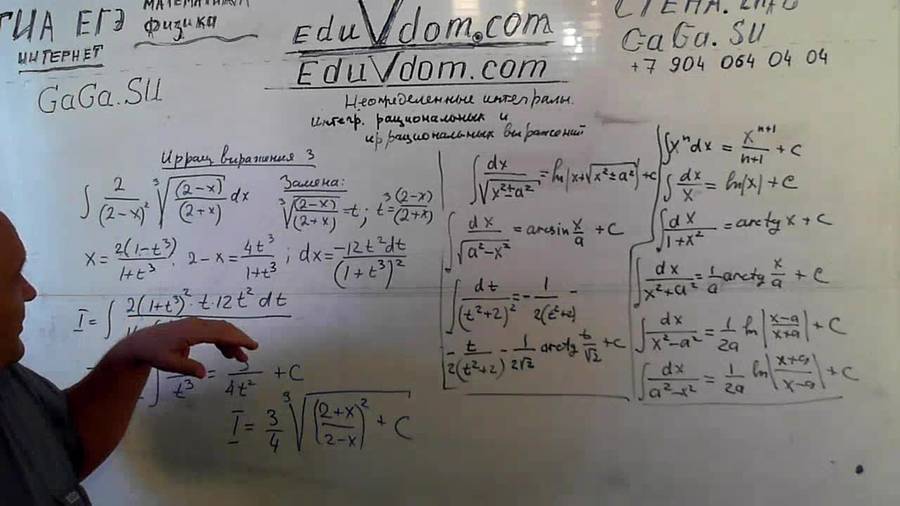 ГИА ЕГЭ
ИНТЕРНЕТ
МАТЕМАТИКА
физика
EduVdom.com
EduVdom.com
GaGa.SU
+7 904 064 04 04
GaGa.SU
Неопределенные интегралы.
интегр. рациональных и
иррациональных выражений
Иррац выражения 3
∫ 2/(2-x)² ∛((2-x)/(2+x)) dx
Замена:
∛((2-x)/(2+x)) = t; t³ = (2-x)/(2+x)
x = 2(1-t³)/(1+t³) . 2-x = 4t³/(1+t³) ; dx = -12t²dt/(1+t³)²
I = ∫ 2(1+t³)²·t·12t² dt
∫ /t³ = 3/4t² + C
I = 3/4 ∛((2+x)/(2-x))² + C
∫ dx/√(x²±a²) = ln|x+√(x²±a²)| + C
∫ dx/√(a²-x²) = arcsin x/a + C
∫ dt/(t²+2)² = - 1/2(t²+2) -
- t/2(t²+2) - 1/2√2 arctg t/√2 + C
∫ xⁿ dx = xⁿ⁺¹/(n+1) + C
∫ dx/x = ln|x| + C
∫ dx/(1+x²) = arctg x + C
∫ dx/(x²+a²) = 1/a arctg x/a + C
∫ dx/(x²-a²) = 1/2a ln|(x-a)/(x+a)| + C
∫ dx/(a²-x²) = 1/2a ln|(x+a)/(x-a)| + C